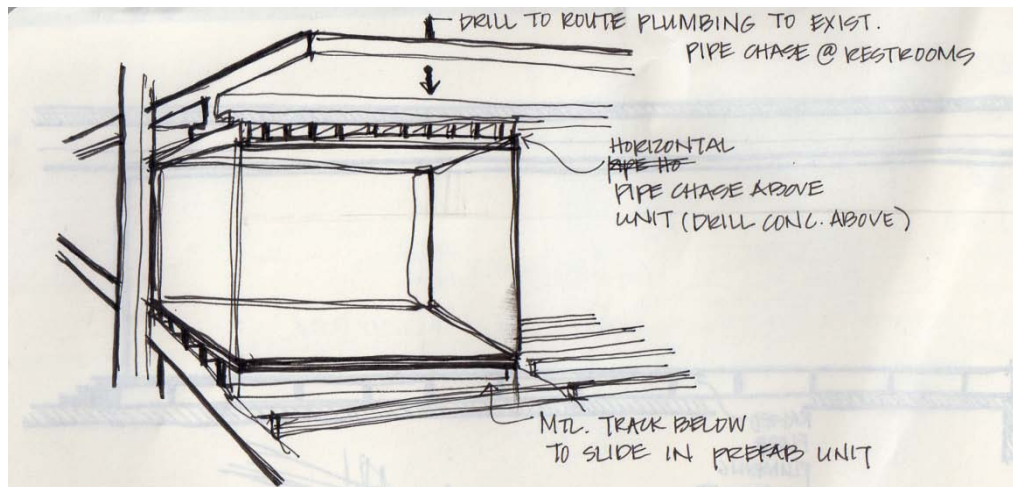 DRILL TO ROUTE PLUMBING TO EXIST.
PIPE CHASE @ RESTROOMS
HORIZONTAL
PIPE HO
PIPE CHASE ABOVE
UNIT (DRILL CONC. ABOVE)
MTL. TRACK BELOW
TO SLIDE IN PREFAB UNIT